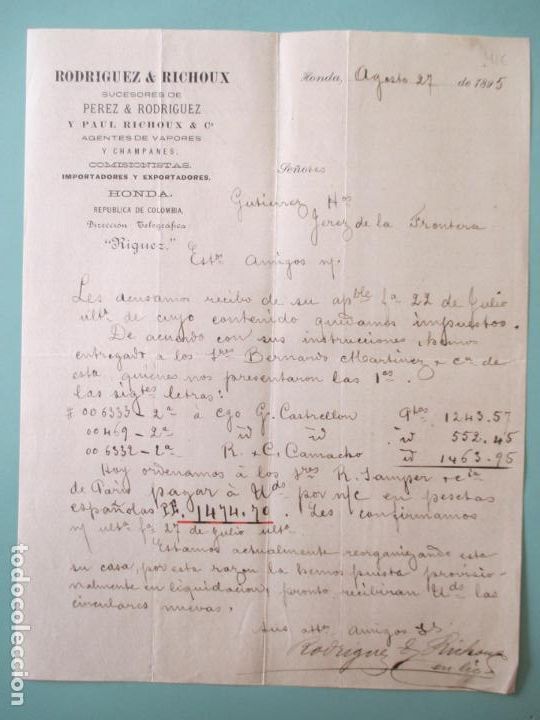 RODRIGUEZ & RICHOUX
SUCESORES DE
PEREZ & RODRIGUEZ
Y PAUL RICHOUX & Cª
AGENTES DE VAPORES
Y CHAMPANES.
COMISIONISTAS.
IMPORTADORES Y EXPORTADORES.
HONDA.
REPUBLICA DE COLOMBIA.
Dirección Telegráfica
"Riguez."
Honda, Agosto 27 de 1895
Señores
Gutierrez Hos
Jerez de la Frontera
Estos Amigos n/.
Les acusamos recibo de su apble fa 22 de Julio
ulto de cuyo contenido quedamos impuestos.
De acuerdo con sus instrucciones hemos
entregado a los Sres Bernardo Martinez & Ca de
esta quienes nos presentaron las 1as.
las sigtes letras:
# 006333 - 2a à cgo G. Castrellon Ptas 1243.57
00469 - 2a id id id 552.45
006332 - 2a R. & C. Camacho id 1463.95
Hoy ordenamos à los Sres R. Samper & Cia
de Paris pagar à Uds por n/c en pesetas
españolas 1474.70. Les confirmamos
n/ ulta fa 27 de Julio ulto
Estamos actualmente reorganizando esta
su casa, por esta razon la hemos puesta provisio-
nalmente en liquidacion, pronto recibiran Uds las
circulares nuevas.
Sus atts Amigos Ss
Rodriguez & Richoux
en liqn
todocoleccion